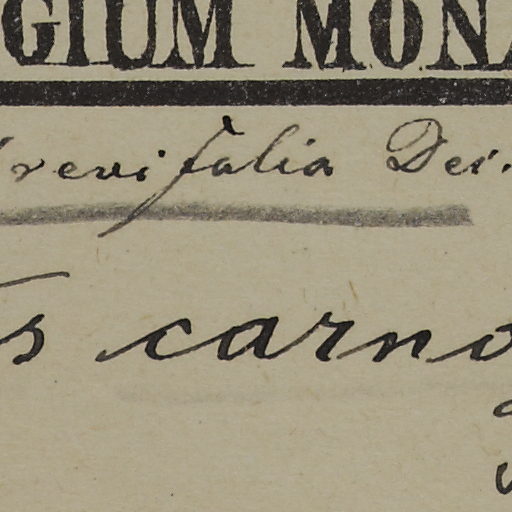 GIUM MONA
revifolia Des.
s carno